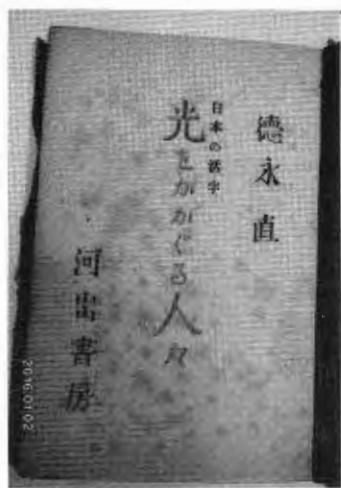 德永直
日本の活字
光をかかぐる人々
河出書房
2016.01.02